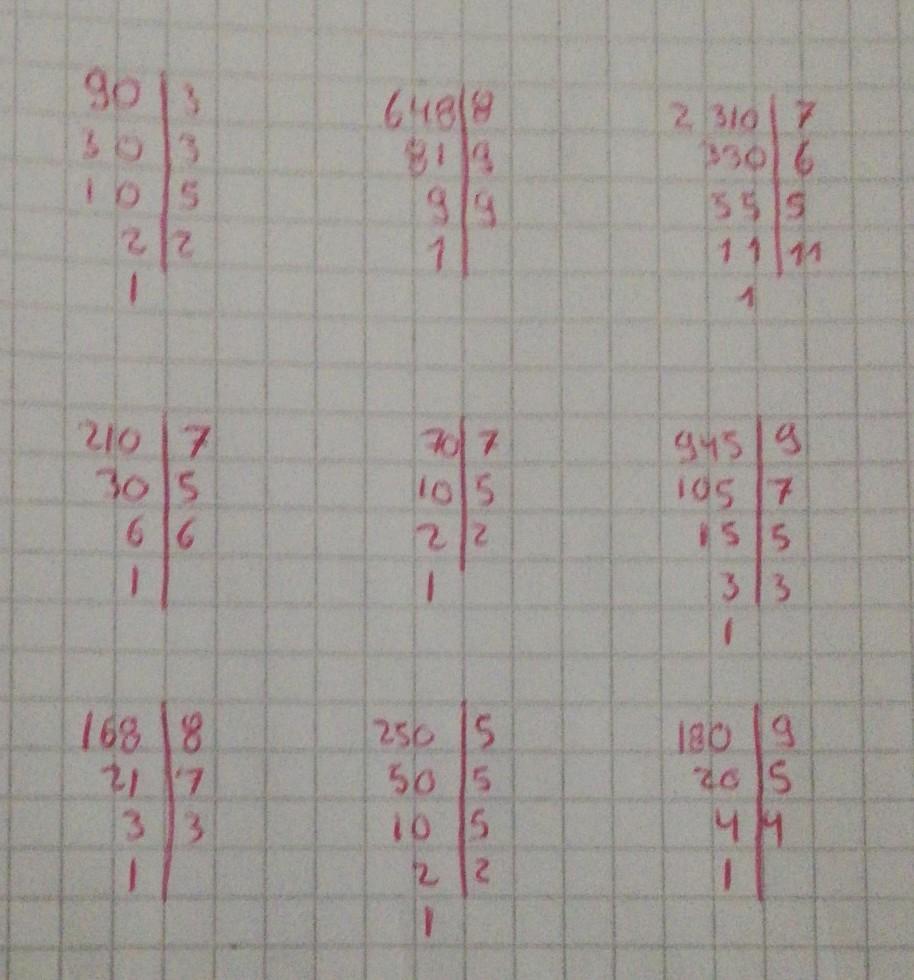 90 | 3
30 | 3
10 | 5
2 | 2
1
648 | 8
81 | 9
9 | 9
1
2 310 | 7
330 | 6
55 | 5
11 | 11
1
210 | 7
30 | 5
6 | 6
1
70 | 7
10 | 5
2 | 2
1
945 | 9
105 | 7
15 | 5
3 | 3
1
168 | 8
21 | 7
3 | 3
1
250 | 5
50 | 5
10 | 5
2 | 2
1
180 | 9
20 | 5
4 | 4
1